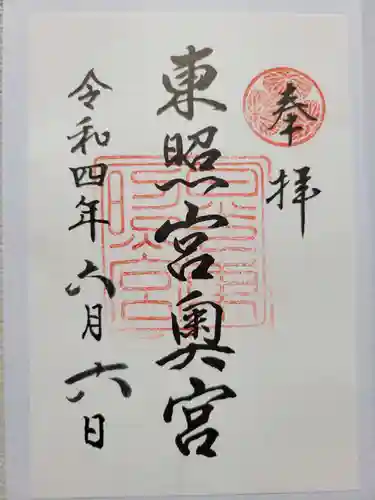 奉拝
東照宮奥宮
令和四年六月六日